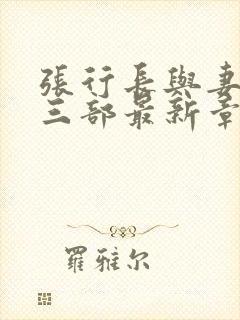 張行長與妻
三部最新章
羅雅尔